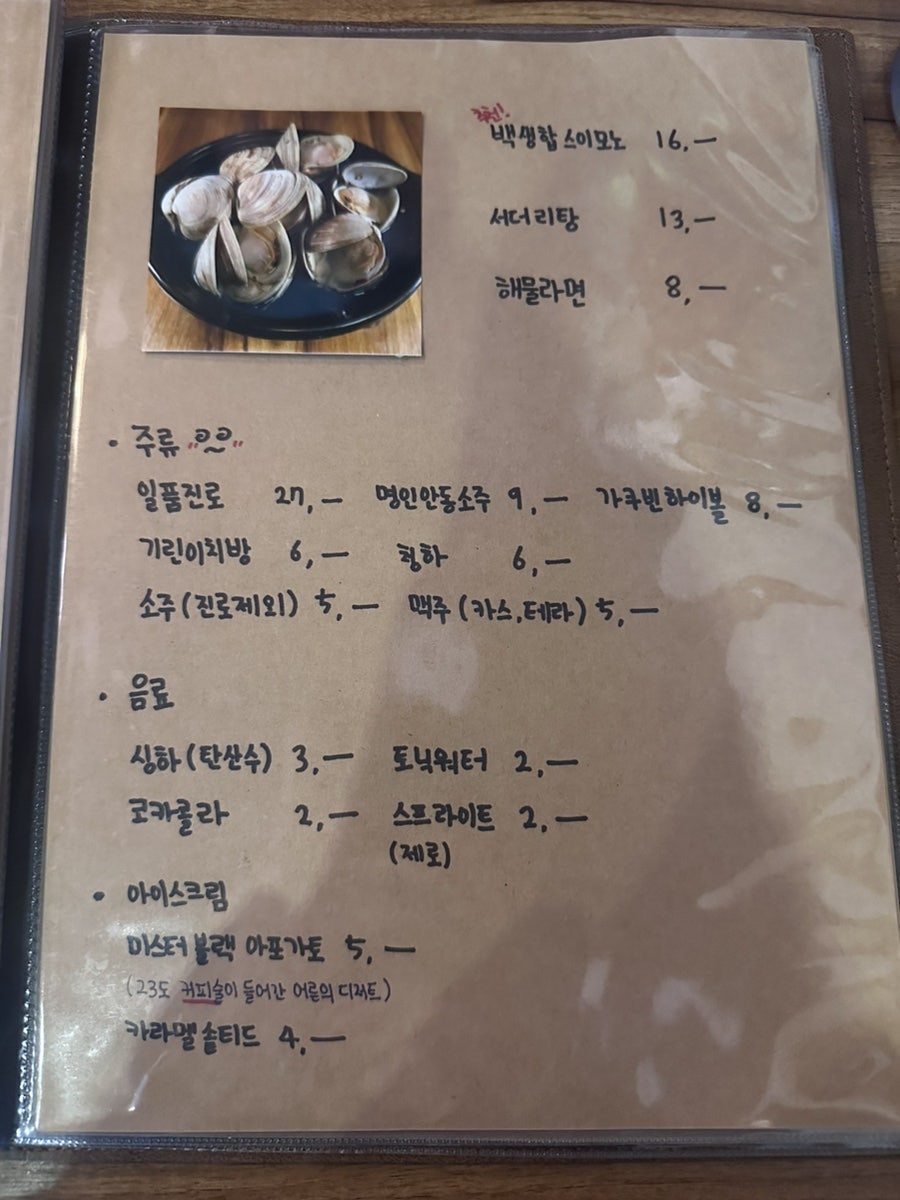 추천!
백생합 스이모노 16,—
서더리탕 13,—
해물라면 8,—
· 주류
일품진로 27,— 명인안동소주 9,— 가쿠빈하이볼 8,—
기린이치방 6,— 청하 6,—
소주(진로제외) 5,— 맥주(카스,테라) 5,—
· 음료
싱하(탄산수) 3,— 토닉워터 2,—
코카콜라 2,— 스프라이트 2,—
(제로)
· 아이스크림
미스터블랙 아포가토 5,—
(23도 커피술이 들어간 어른의 디저트)
카라멜솔티드 4,—